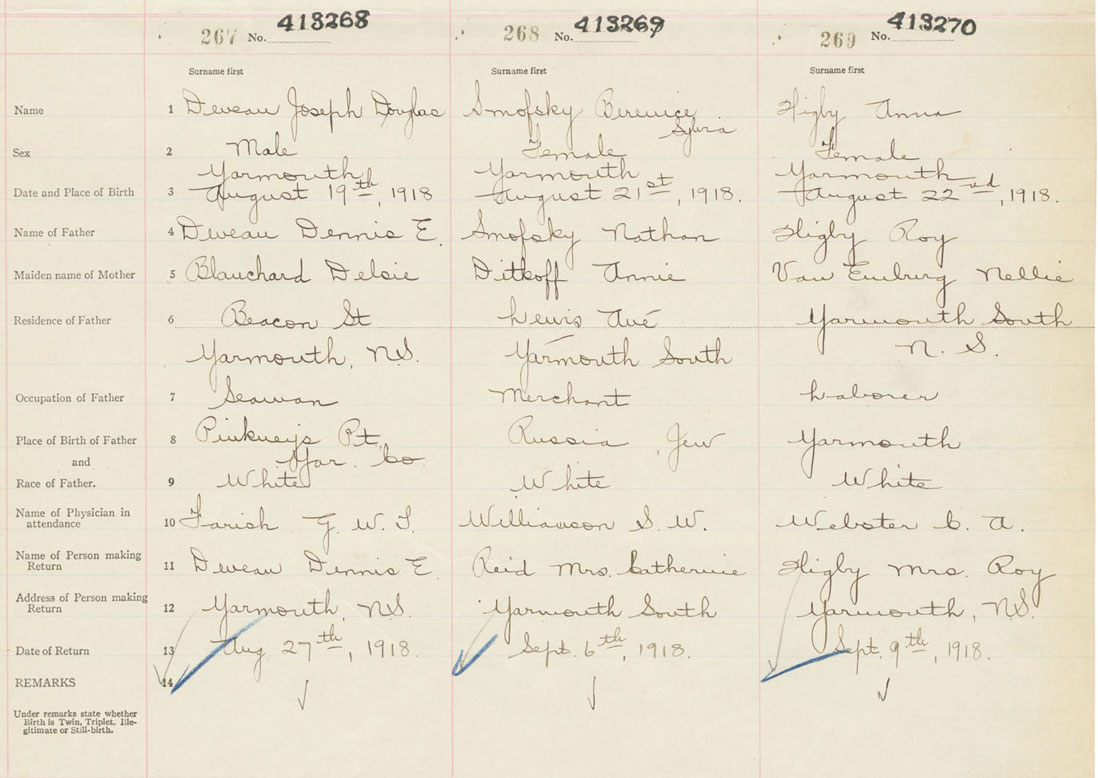 267 No. 413268 268 No. 413269 269 No. 413270
Surname first Surname first Surname first
Name 1 Deveau Joseph Douglas Smofsky Berenice Higby Anna
Sylvia
Sex 2 Male Female Female
Yarmouth Yarmouth Yarmouth
Date and Place of Birth 3 August 19th, 1918 August 21st, 1918. August 22nd, 1918.
Name of Father 4 Deveau Dennis E. Smofsky Nathan Higby Roy
Maiden name of Mother 5 Blanchard Delsie Ditkoff Annie Van Emburg Nellie
Residence of Father 6 Beacon St Lewis Ave Yarmouth South
Yarmouth, N.S. Yarmouth South N. S.
Occupation of Father 7 Seaman Merchant Laborer
Place of Birth of Father 8 Pinkney's Pt. Russia, Jew Yarmouth
and Yar. Co.
Race of Father. 9 White White White
Name of Physician in
attendance 10 Farish G. W. T. Williamson S. W. Webster C. A.
Name of Person making
Return 11 Deveau Dennis E. Reid Mrs. Catherine Higby Mrs. Roy
Address of Person making
Return 12 Yarmouth, N.S. Yarmouth South Yarmouth, N.S.
Date of Return 13 Aug. 27th, 1918. Sept. 6th, 1918. Sept. 9th, 1918.
REMARKS 14
Under remarks state whether
Birth is Twin, Triplet, Ille-
gitimate or Still-birth.